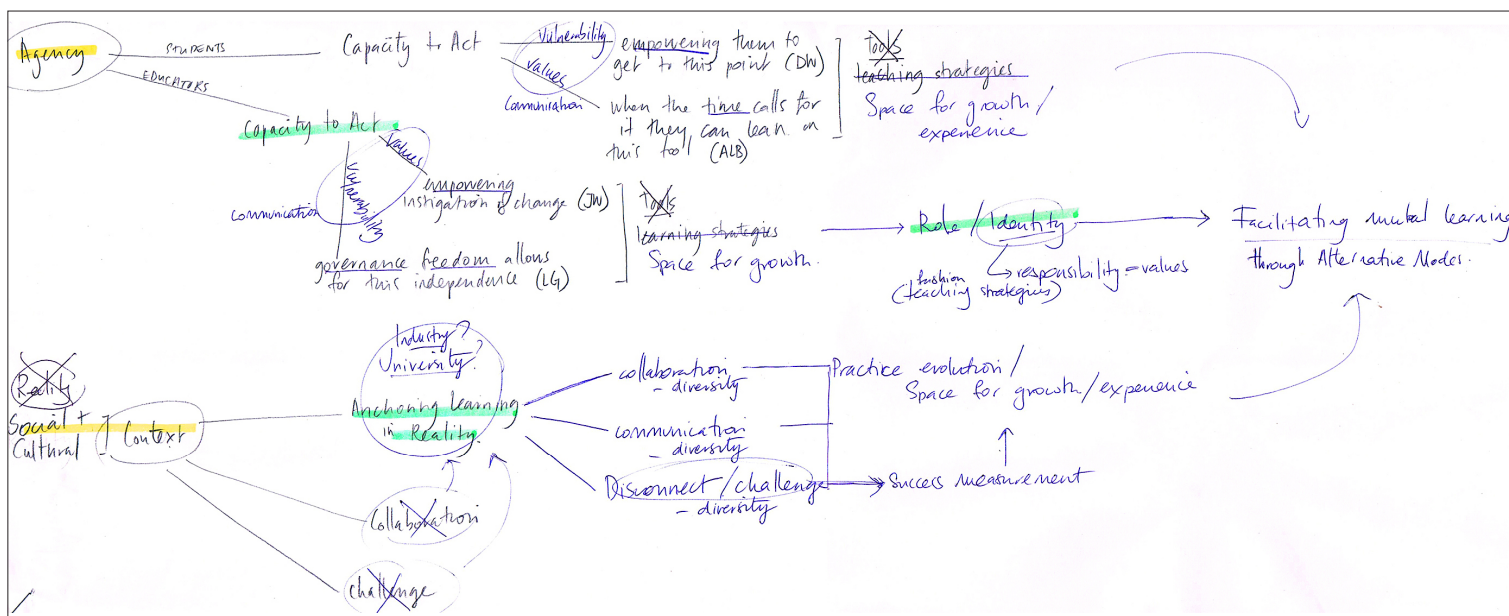 Agency
STUDENTS
EDUCATORS
Capacity to Act
Vulnerability
values
Communication
empowering them to
get to this point (DW)
when the time calls for
it they can lean on
this tool (ALB)
Tools
teaching strategies
Space for growth/
experience
Capacity to Act
values
Vulnerability
communication
empowering
instigation of change (JW)
governance freedom allows
for this independence (LG)
Tools
learning strategies
Space for growth.
Role/Identity
responsibility = values
fashion
(teaching strategies)
Facilitating mutual learning
through Alternative Modes.
Reality
Social +
Cultural
Context
Industry?
University?
Anchoring Learning
in Reality.
Collaboration
challenge
collaboration
- diversity
communication
- diversity
Disconnect/challenge
- diversity
Practice evolution/
Space for growth/experience
Success measurement